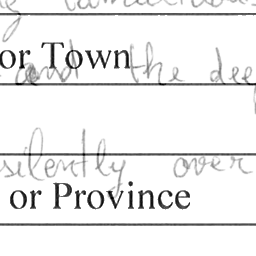 or Town
and the dee
silently over
or Province